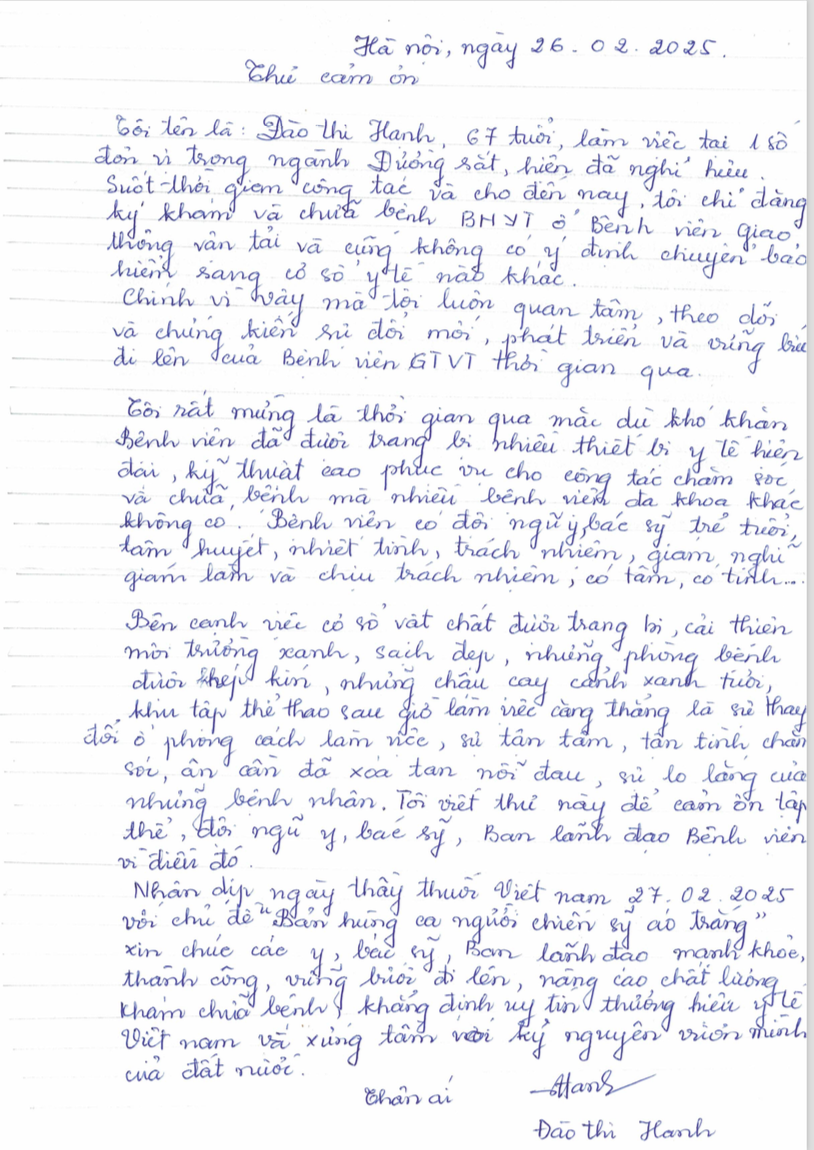 Hà nội, ngày 26.02.2025.
Thư cảm ơn
Tôi tên là: Đào thị Hanh, 67 tuổi, làm việc tại 1 số
đơn vị trong ngành Đường sắt, hiện đã nghỉ hưu.
Suốt thời gian công tác và cho đến nay, tôi chỉ đăng
ký khám và chữa bệnh BHYT ở Bệnh viện giao
thông vận tải và cũng không có ý định chuyển bảo
hiểm sang cơ sở y tế nào khác.
Chính vì vậy mà tôi luôn quan tâm, theo dõi
và chứng kiến sự đổi mới, phát triển và vững bước
đi lên của Bệnh viện GTVT thời gian qua.
Tôi rất mừng là thời gian qua mặc dù khó khăn
Bệnh viện đã được trang bị nhiều thiết bị y tế hiện
đại, kỹ thuật cao phục vụ cho công tác chăm sóc
và chữa bệnh mà nhiều bệnh viện đa khoa khác
không có. Bệnh viện có đội ngũ y, bác sỹ trẻ tuổi,
tâm huyết, nhiệt tình, trách nhiệm, giám nghĩ
giám làm và chịu trách nhiệm, có tâm, có tình...
Bên cạnh việc cơ sở vật chất được trang bị, cải thiện
môi trường xanh, sạch đẹp, những phòng bệnh
được khép kín, những chậu cây cảnh xanh tươi,
khu tập thể thao sau giờ làm việc căng thẳng là sự thay
đổi ở phong cách làm việc, sự tận tâm, tận tình chăm
sóc, ân cần đã xóa tan nỗi đau, sự lo lắng của
những bệnh nhân. Tôi viết thư này để cảm ơn tập
thể, đội ngũ y, bác sỹ, Ban lãnh đạo Bệnh viện
vì điều đó.
Nhân dịp ngày thầy thuốc Việt nam 27.02.2025
với chủ đề "Bản hùng ca người chiến sỹ áo trắng"
xin chúc các y, bác sỹ, Ban lãnh đạo mạnh khỏe,
thành công, vững bước đi lên, nâng cao chất lượng
khám chữa bệnh, khẳng định uy tín thương hiệu y tế
Việt nam và xứng tầm với kỷ nguyên vươn mình
của đất nước.
Thân ái
Hanh
Đào thị Hanh